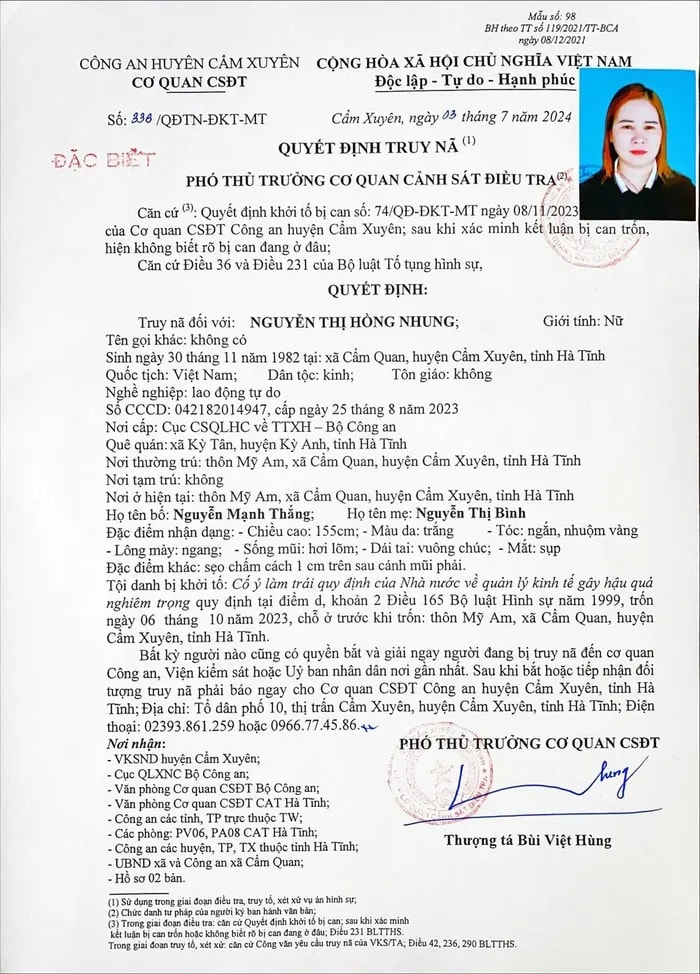 Mẫu số: 98
BH theo TT số 119/2021/TT-BCA
ngày 08/12/2021
CÔNG AN HUYỆN CẨM XUYÊN
CƠ QUAN CSĐT
CỘNG HÒA XÃ HỘI CHỦ NGHĨA VIỆT NAM
Độc lập - Tự do - Hạnh phúc
Số: 336 /QĐTN-ĐKT-MT
Cẩm Xuyên, ngày 03 tháng 7 năm 2024
ĐẶC BIỆT
QUYẾT ĐỊNH TRUY NÃ (1)
PHÓ THỦ TRƯỞNG CƠ QUAN CẢNH SÁT ĐIỀU TRA(2)
Căn cứ (3): Quyết định khởi tố bị can số: 74/QĐ-ĐKT-MT ngày 08/11/2023
của Cơ quan CSĐT Công an huyện Cẩm Xuyên; sau khi xác minh kết luận bị can trốn,
hiện không biết rõ bị can đang ở đâu;
Căn cứ Điều 36 và Điều 231 của Bộ luật Tố tụng hình sự,
QUYẾT ĐỊNH:
Truy nã đối với: NGUYỄN THỊ HỒNG NHUNG; Giới tính: Nữ
Tên gọi khác: không có
Sinh ngày 30 tháng 11 năm 1982 tại: xã Cẩm Quan, huyện Cẩm Xuyên, tỉnh Hà Tĩnh
Quốc tịch: Việt Nam; Dân tộc: kinh; Tôn giáo: không
Nghề nghiệp: lao động tự do
Số CCCD: 042182014947, cấp ngày 25 tháng 8 năm 2023
Nơi cấp: Cục CSQLHC về TTXH – Bộ Công an
Quê quán: xã Kỳ Tân, huyện Kỳ Anh, tỉnh Hà Tĩnh
Nơi thường trú: thôn Mỹ Am, xã Cẩm Quan, huyện Cẩm Xuyên, tỉnh Hà Tĩnh
Nơi tạm trú: không
Nơi ở hiện tại: thôn Mỹ Am, xã Cẩm Quan, huyện Cẩm Xuyên, tỉnh Hà Tĩnh
Họ tên bố: Nguyễn Mạnh Thắng; Họ tên mẹ: Nguyễn Thị Bình
Đặc điểm nhận dạng: - Chiều cao: 155cm; - Màu da: trắng - Tóc: ngắn, nhuộm vàng
- Lông mày: ngang; - Sống mũi: hơi lõm; - Dái tai: vuông chúc; - Mắt: sụp
Đặc điểm khác: sẹo chấm cách 1 cm trên sau cánh mũi phải.
Tội danh bị khởi tố: Cố ý làm trái quy định của Nhà nước về quản lý kinh tế gây hậu quả
nghiêm trọng quy định tại điểm d, khoản 2 Điều 165 Bộ luật Hình sự năm 1999, trốn
ngày 06 tháng 10 năm 2023, chỗ ở trước khi trốn: thôn Mỹ Am, xã Cẩm Quan, huyện
Cẩm Xuyên, tỉnh Hà Tĩnh.
Bất kỳ người nào cũng có quyền bắt và giải ngay người đang bị truy nã đến cơ quan
Công an, Viện kiểm sát hoặc Uỷ ban nhân dân nơi gần nhất. Sau khi bắt hoặc tiếp nhận đối
tượng truy nã phải báo ngay cho Cơ quan CSĐT Công an huyện Cẩm Xuyên, tỉnh Hà
Tĩnh; Địa chỉ: Tổ dân phố 10, thị trấn Cẩm Xuyên, huyện Cẩm Xuyên, tỉnh Hà Tĩnh; Điện
thoại: 02393.861.259 hoặc 0966.77.45.86.
Nơi nhận:
- VKSND huyện Cẩm Xuyên;
- Cục QLXNC Bộ Công an;
- Văn phòng Cơ quan CSĐT Bộ Công an;
- Văn phòng Cơ quan CSĐT CAT Hà Tĩnh;
- Công an các tỉnh, TP trực thuộc TW;
- Các phòng: PV06, PA08 CAT Hà Tĩnh;
- Công an các huyện, TP, TX thuộc tỉnh Hà Tĩnh;
- UBND xã và Công an xã Cẩm Quan;
- Hồ sơ 02 bản.
PHÓ THỦ TRƯỞNG CƠ QUAN CSĐT
Thượng tá Bùi Việt Hùng
(1) Sử dụng trong giai đoạn điều tra, truy tố, xét xử vụ án hình sự;
(2) Chức danh tư pháp của người ký ban hành văn bản;
(3) Trong giai đoạn điều tra: căn cứ Quyết định khởi tố bị can; sau khi xác minh
kết luận bị can trốn hoặc không biết rõ bị can đang ở đâu; Điều 231 BLTTHS.
Trong giai đoạn truy tố, xét xử: căn cứ Công văn yêu cầu truy nã của VKS/TA; Điều 42, 236, 290 BLTTHS.